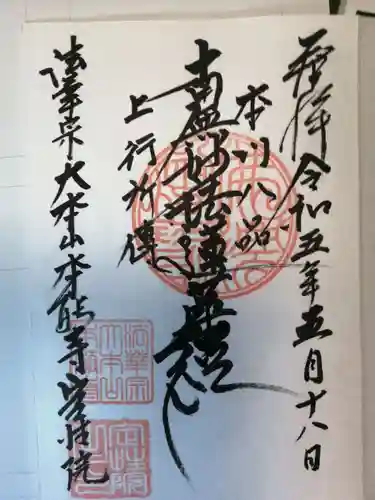 奉拝 令和五年五月十八日
本門八品
南無妙法蓮華経
上行所傳
法華宗大本山本能寺